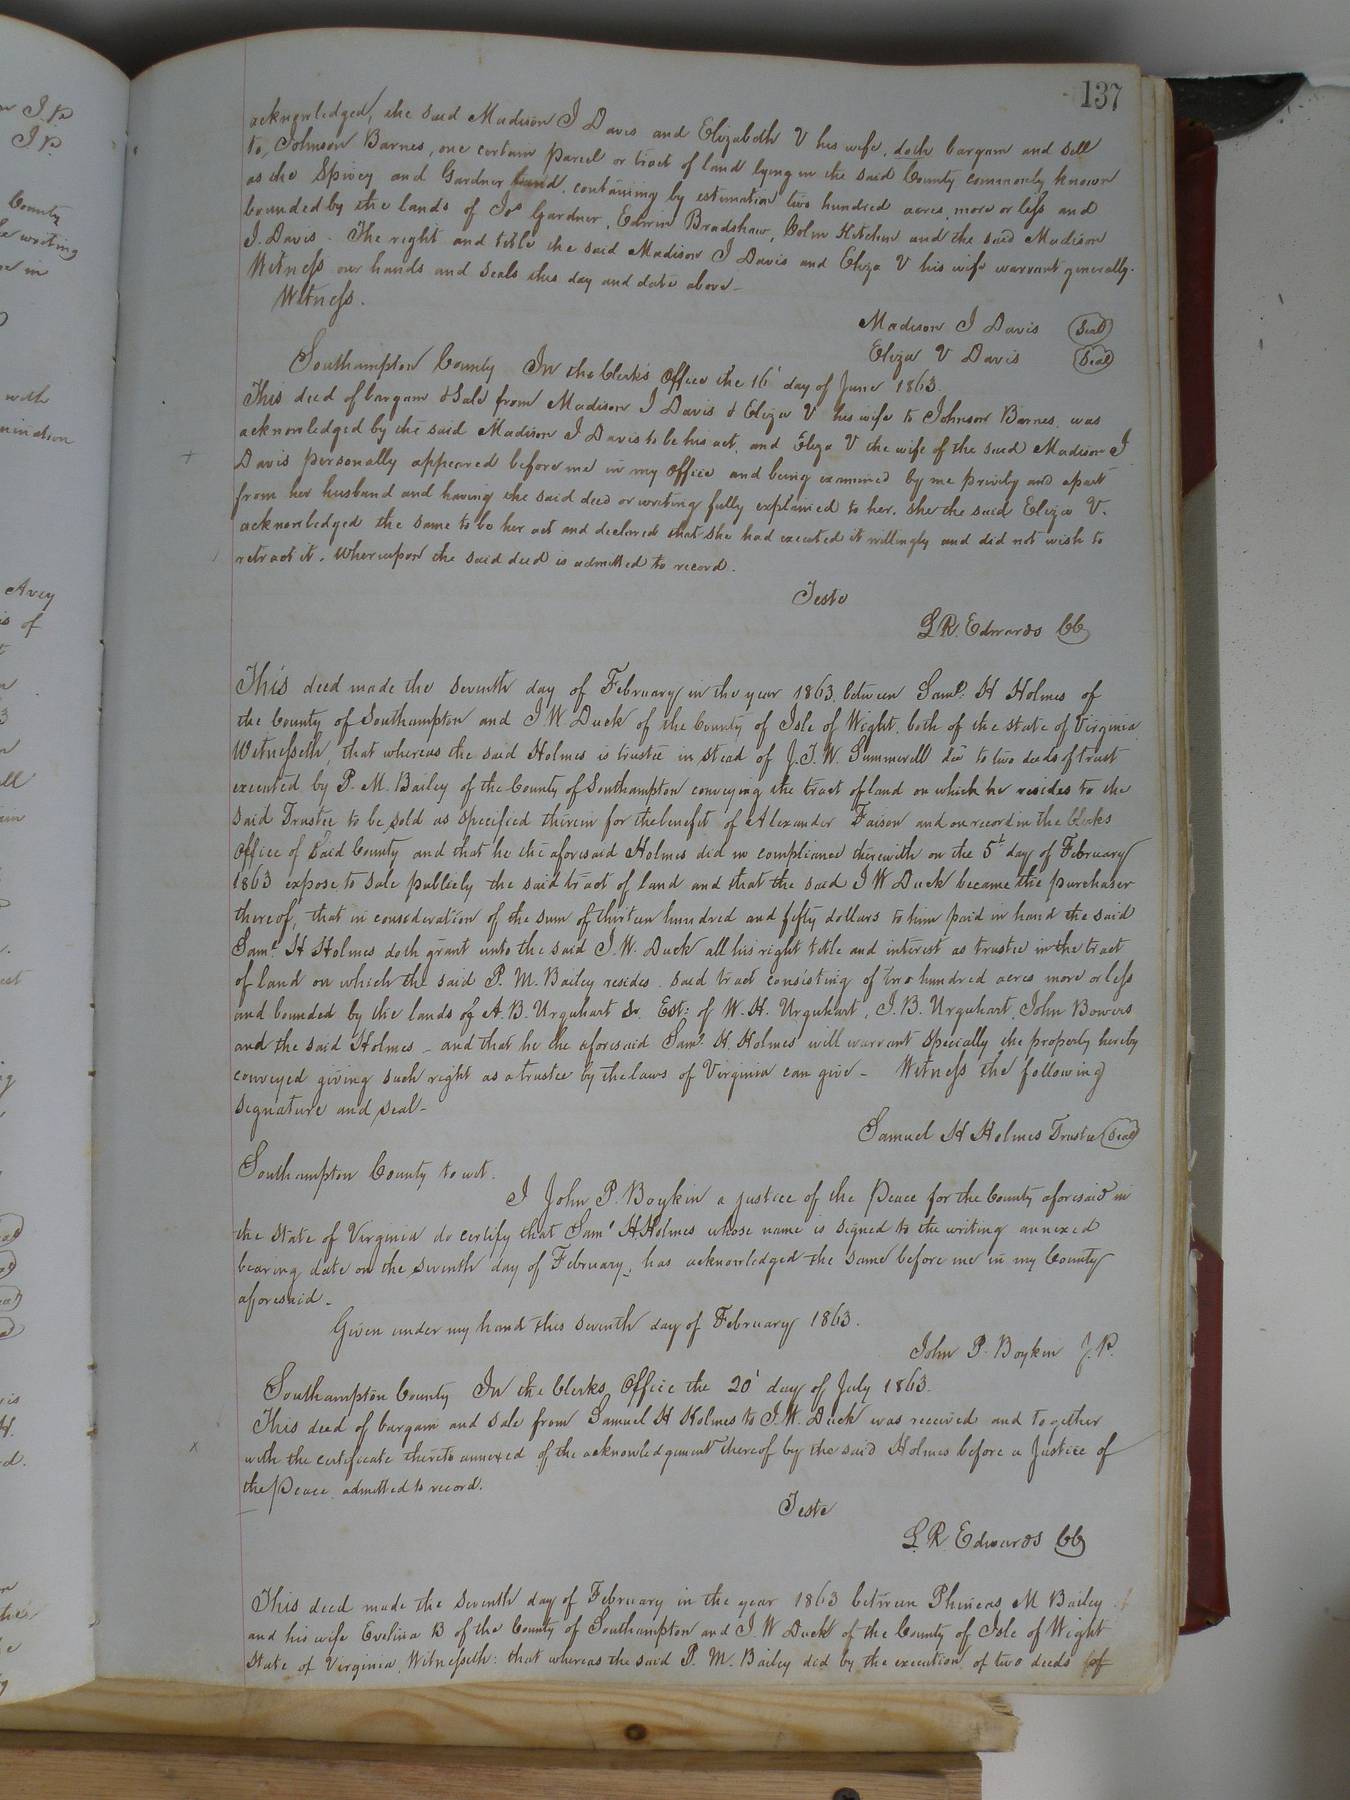 137
acknowledged, the said Madison J Davis and Elizabeth V his wife, doth bargain and sell
to, Johnson Barnes, one certain parcel or tract of land lying in the said County commonly known
as the Spivey and Gardner land, containing by estimation two hundred acres, more or less and
bounded by the lands of Jos Gardner, Edwin Bradshaw, Colin Kitchen and the said Madison
J. Davis. The right and title the said Madison J Davis and Eliza V his wife warrant generally.
Witness our hands and seals this day and date above -
Witness.
Madison J Davis Seal
Eliza V Davis Seal
Southampton County In the Clerk's Office the 16' day of June 1863.
This deed of bargain & Sale from Madison J Davis & Eliza V his wife to Johnson Barnes, was
acknowledged by the said Madison J Davis to be his act, and Eliza V the wife of the said Madison J
Davis personally appeared before me in my Office and being examined by me privily and apart
from her husband and having the said deed or writing fully explained to her, she the said Eliza V.
acknowledged the same to be her act and declared that she had executed it willingly and did not wish to
retract it. Whereupon the said deed is admitted to record.
Teste
L R. Edwards CC
This deed made the Seventh day of February in the year 1863 between Saml. H Holmes of
the County of Southampton and J W Duck of the County of Isle of Wight, both of the state of Virginia
Witnesseth, that whereas the said Holmes is trustee in stead of J. T. W. Summerell dec to two deeds of trust
executed by P. M. Bailey of the County of Southampton conveying the tract of land on which he resides to the
said Trustee to be sold as specified therein for the benefit of Alexander Faison and on record in the Clerks
Office of Said County and that he the aforesaid Holmes did in compliance therewith on the 5t day of February
1863 expose to sale publicly the said tract of land and that the said J W Duck became the purchaser
thereof, that in consideration of the sum of thirteen hundred and fifty dollars to him paid in hand the said
Saml. H Holmes doth grant unto the said J. W. Duck all his right title and interest as trustee in the tract
of land on which the said P. M. Bailey resides. said tract consisting of two hundred acres more or less
and bounded by the lands of A. B. Urquhart Sr. Est: of W. H. Urquhart, J. B. Urquhart, John Bowers
and the said Holmes - and that he the aforesaid Saml. H. Holmes will warrant specially the property hereby
conveyed giving such right as a trustee by the laws of Virginia can give - Witness the following
signature and seal -
Samuel H Holmes Trustee Seal
Southampton County to wit.
I John P. Boykin a justice of the Peace for the County aforesaid in
the State of Virginia do certify that Saml H Holmes whose name is signed to the writing annexed
bearing date on the seventh day of February, has acknowledged the same before me in my County
aforesaid -
Given under my hand this seventh day of February 1863.
John P. Boykin J. P.
Southampton County In the Clerks Office the 20' day of July 1863.
This deed of bargain and sale from Samuel H Holmes to J. W. Duck was received and together
with the certificate thereto annexed of the acknowledgment thereof by the said Holmes before a Justice of
the Peace admitted to record.
Teste
L. R. Edwards CC
This deed made the Seventh day of February in the year 1863 between Phineas M Bailey
and his wife Evelina B of the County of Southampton and J. W Duck of the County of Isle of Wight
State of Virginia, Witnesseth: that whereas the said P. M. Bailey did by the execution of two deeds of